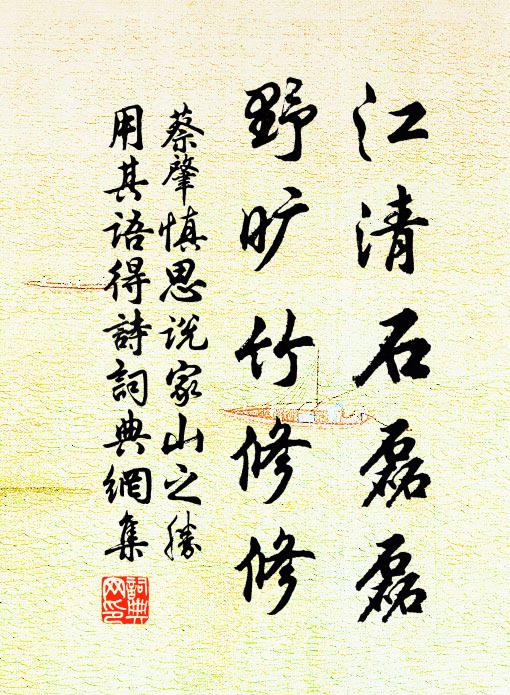 江清石磊磊
野旷竹修修
蔡肇慎思说家山之勝
用其语得詩詞典網集
詞典網印